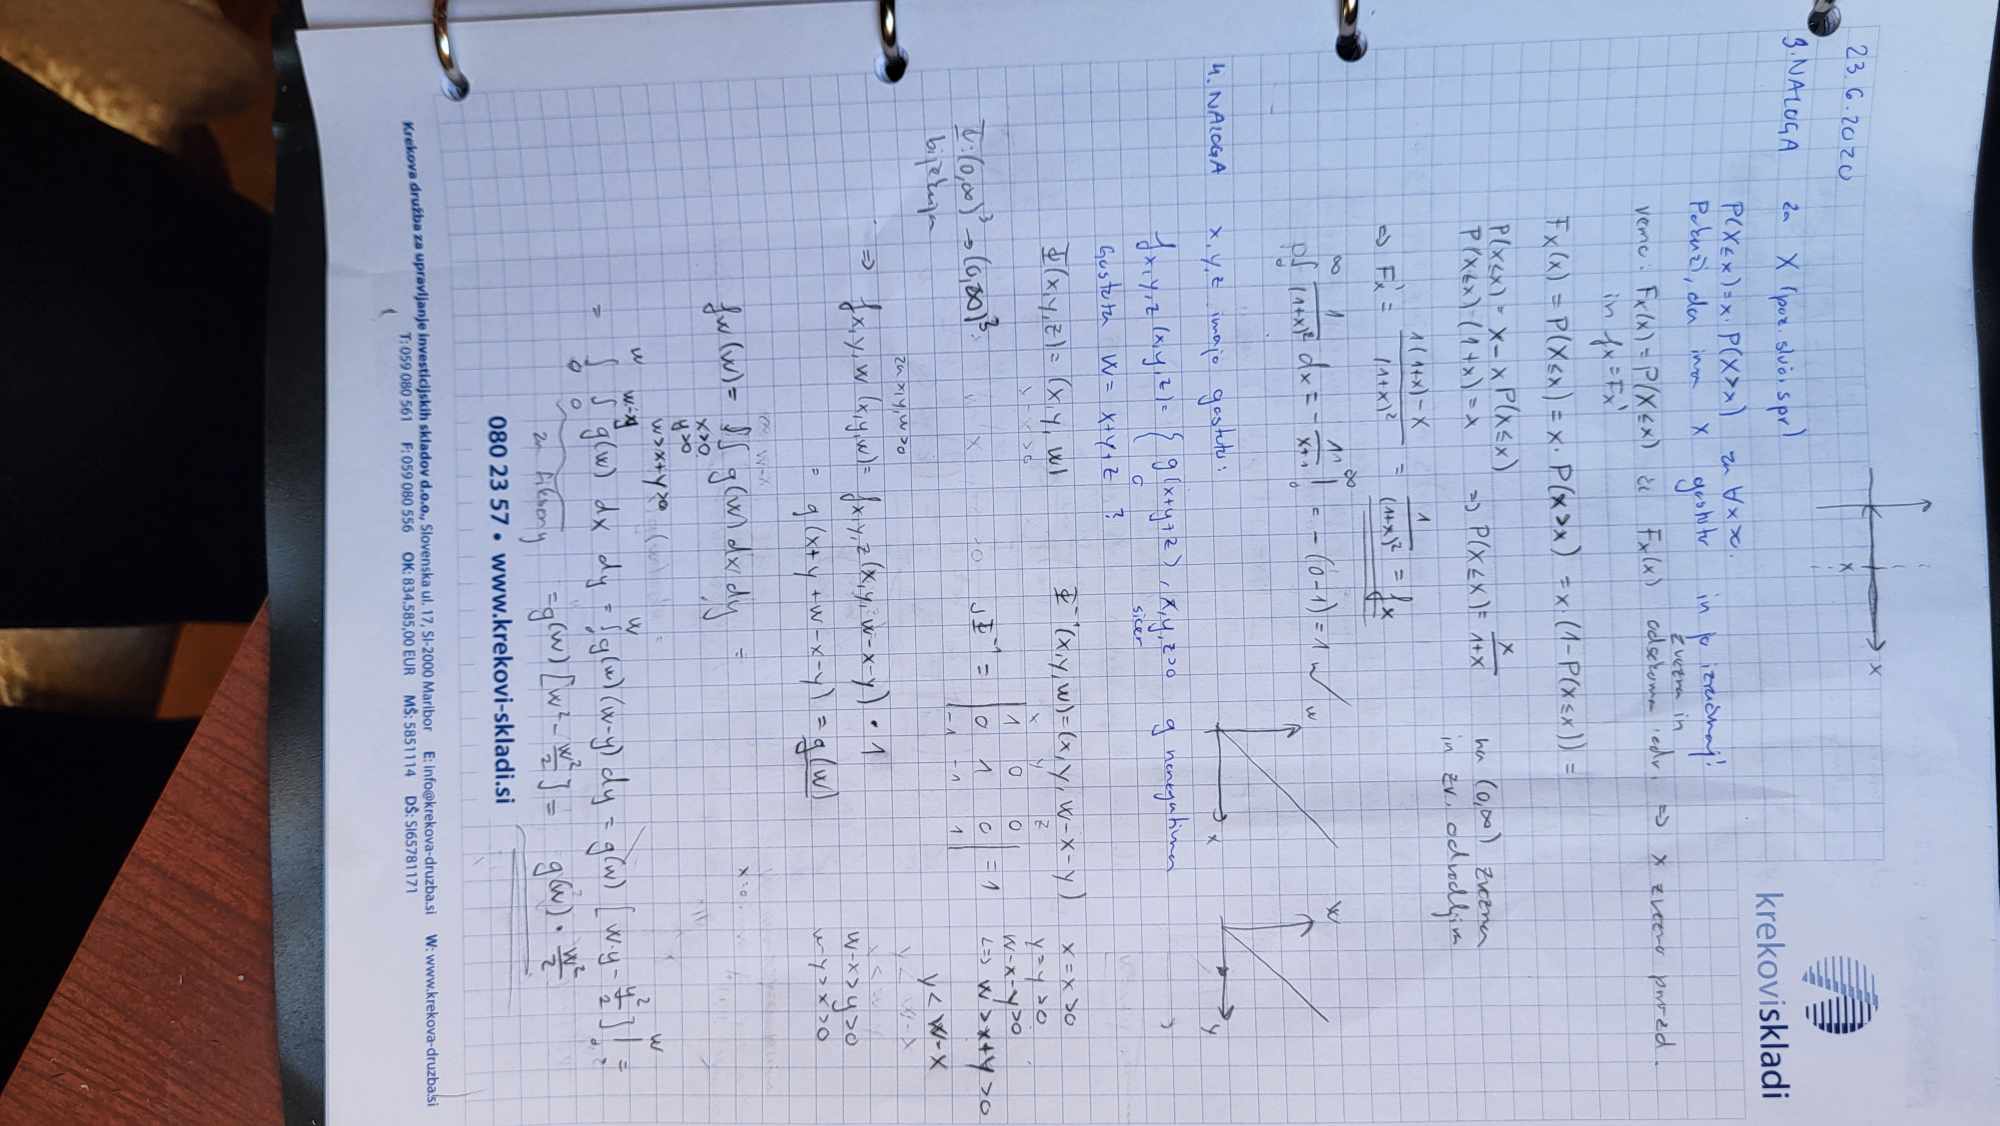 23.6.2020
krekoviskladi
3. NALOGA za X (poz. sluč. spr)
P(X≤x) = x·P(X>x) za ∀x>0.
Pokaži, da ima X gostoto in jo izračunaj!
vemo: F_X(x) = P(X≤x) če F_X(x) zvezna in odsekoma odv. ⇒ X zvezno porazd.
in f_X = F_X'
F_X(x) = P(X≤x) = x·P(X>x) = x·(1-P(X≤x)) =
P(X≤x) = x - x P(X≤x)
P(X≤x)·(1+x) = x ⇒ P(X≤x) = x/(1+x) na (0,∞) zvezna
in zv. odvedljiva
⇒ F_X' = (1(1+x)-x)/(1+x)² = 1/(1+x)² = f_X
∫₀^∞ 1/(1+x)² dx = -1/(x+1) |₀^∞ = -(0-1) = 1
4. NALOGA x,y,z imajo gostoto:
f_{x,y,z}(x,y,z) = { g(x+y+z), x,y,z>0 g nenegativna
0 sicer
Gostota W = x+y+z ?
Φ(x,y,z) = (x,y,w) Φ⁻¹(x,y,w) = (x,y,w-x-y)
x = x > 0
y = y > 0
w-x-y > 0
⇔ w > x+y > 0
y < w-x
Φ: (0,∞)³ → (0,∞)³
bijekcija
JΦ⁻¹ =
x y z
| 1 0 0 |
| 0 1 0 | = 1
| -1 -1 1 |
za x,y,w>0
⇒ f_{x,y,w}(x,y,w) = f_{x,y,z}(x,y,w-x-y) · 1
w-x>y>0
w-y>x>0
= g(x+y+w-x-y) = g(w)
f_W(w) = ∬ g(w) dx dy =
x>0
y>0
w>x+y>0
= ∫₀^w ∫₀^{w-y} g(w) dx dy = ∫₀^w g(w)(w-y) dy = g(w) [w·y - y²/2] |₀^w =
= g(w) [w² - w²/2] = g(w) · w²/2
080 23 57 • www.krekovi-skladi.si
Krekova družba za upravljanje investicijskih skladov d.o.o., Slovenska ul. 17, SI-2000 Maribor E: info@krekova-druzba.si W: www.krekova-druzba.si
T: 059 080 561 F: 059 080 556 OK: 834.585,00 EUR MŠ: 5851114 DŠ: SI65781171